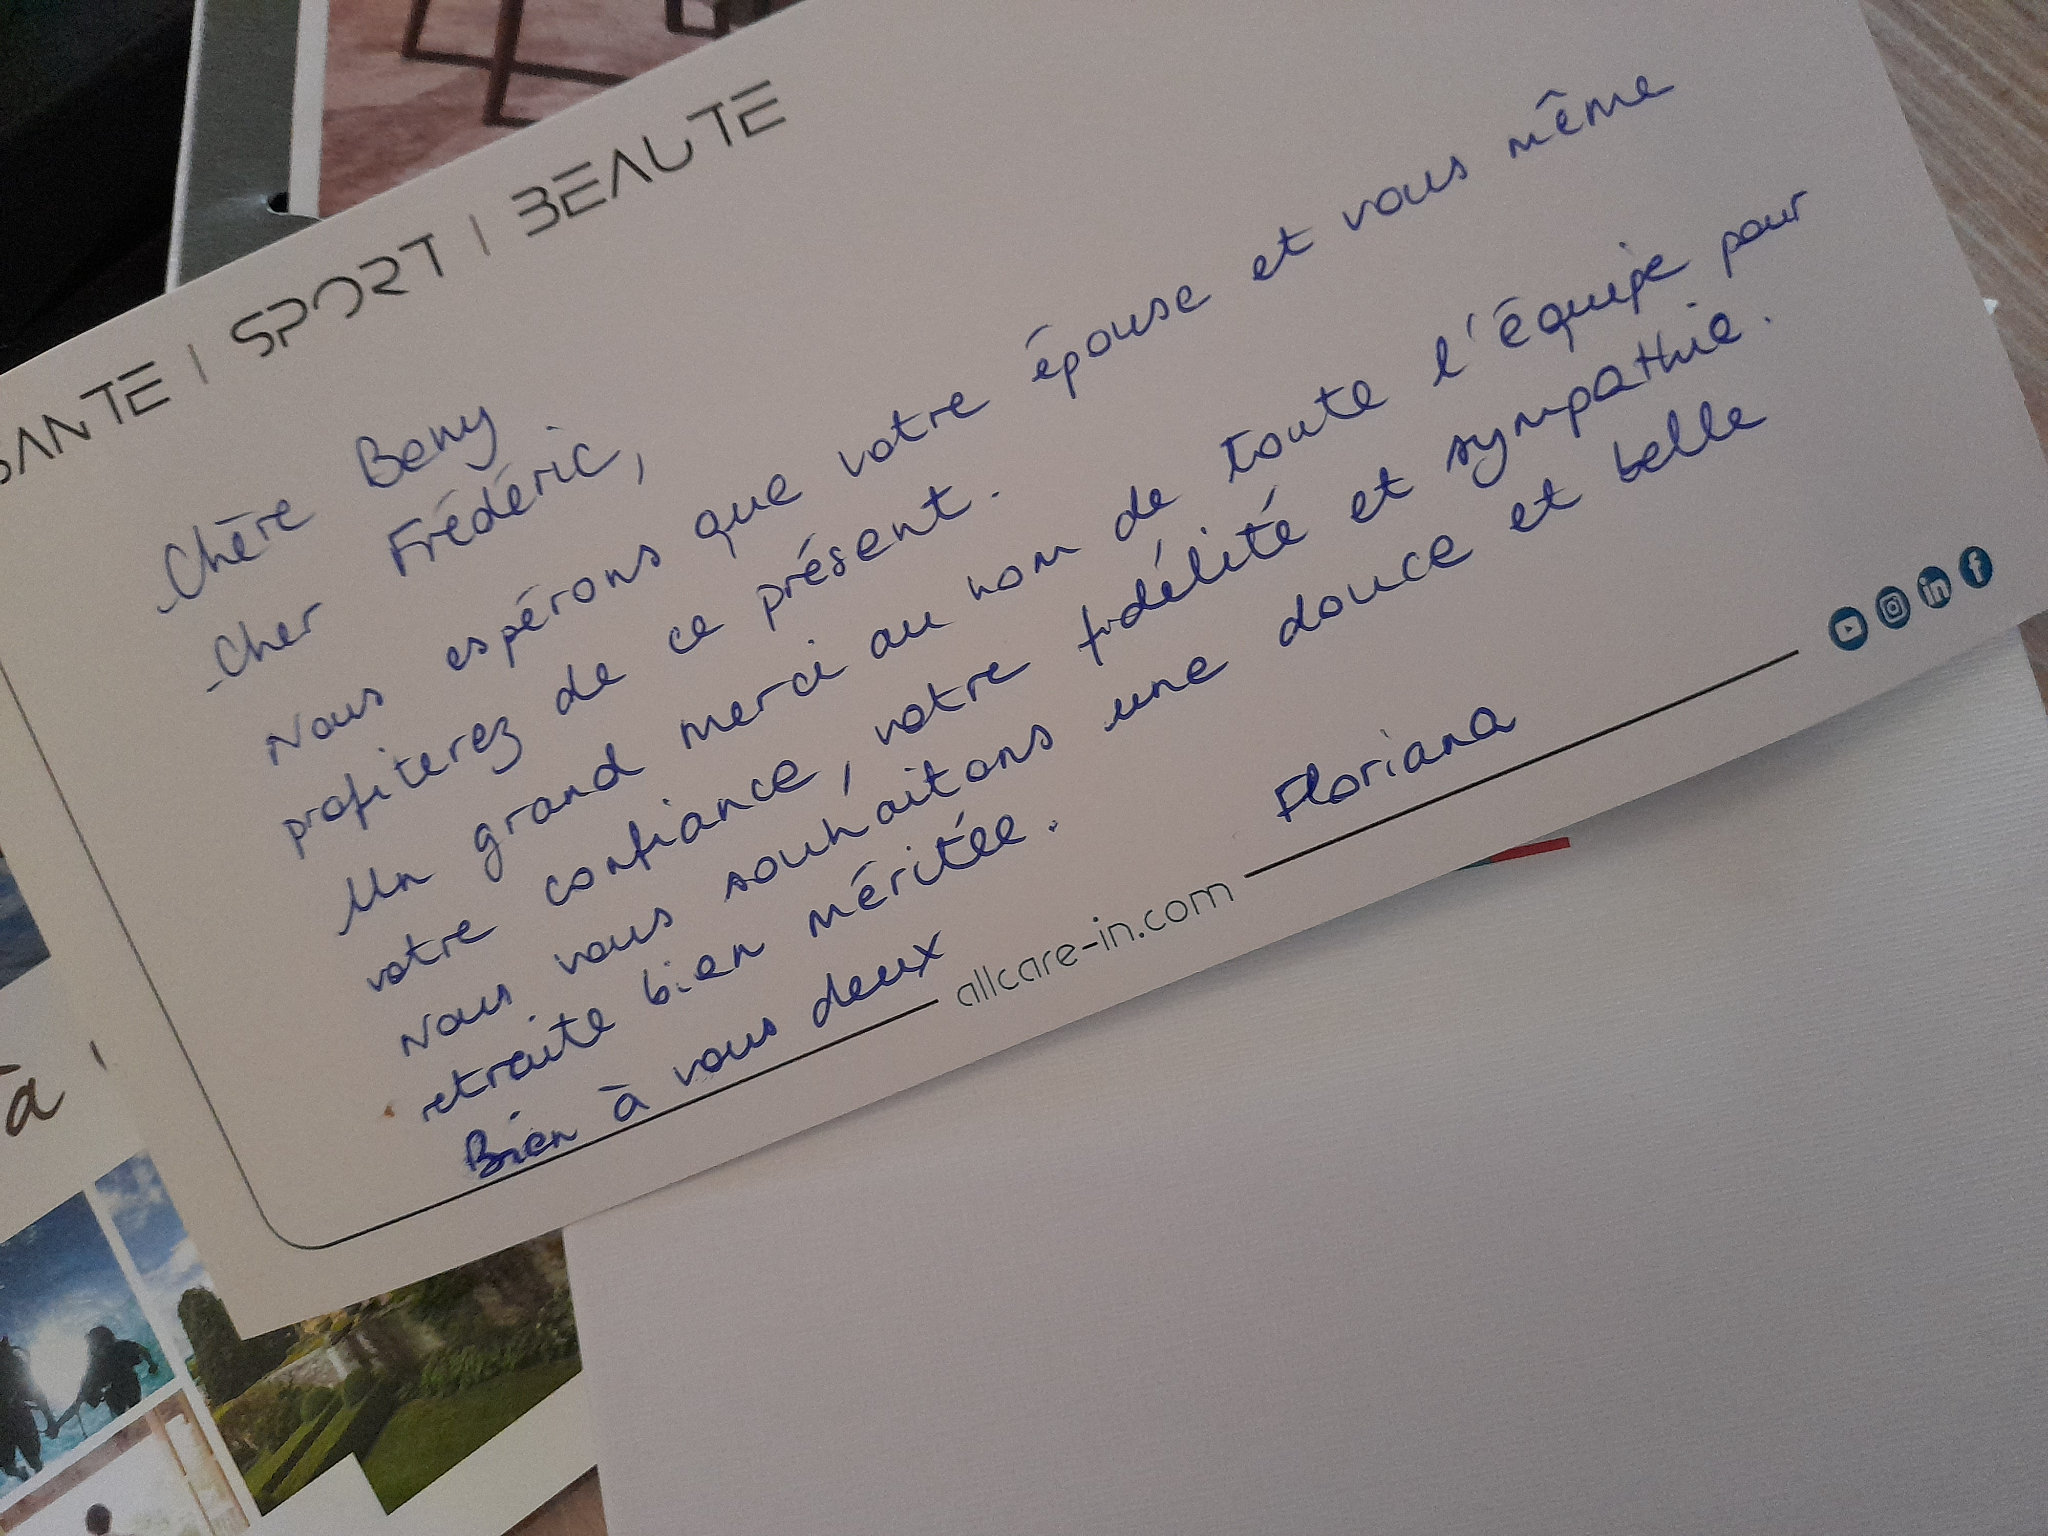 SANTE | SPORT | BEAUTE
-Chère Bony
-Cher Frédéric,
Nous espérons que votre épouse et vous même
profiterez de ce présent.
Un grand merci au nom de toute l'équipe pour
votre confiance, votre fidélité et sympathie.
Nous vous souhaitons une douce et belle
retraite bien méritée.
Bien à vous deux
Floriana
allcare-in.com
à